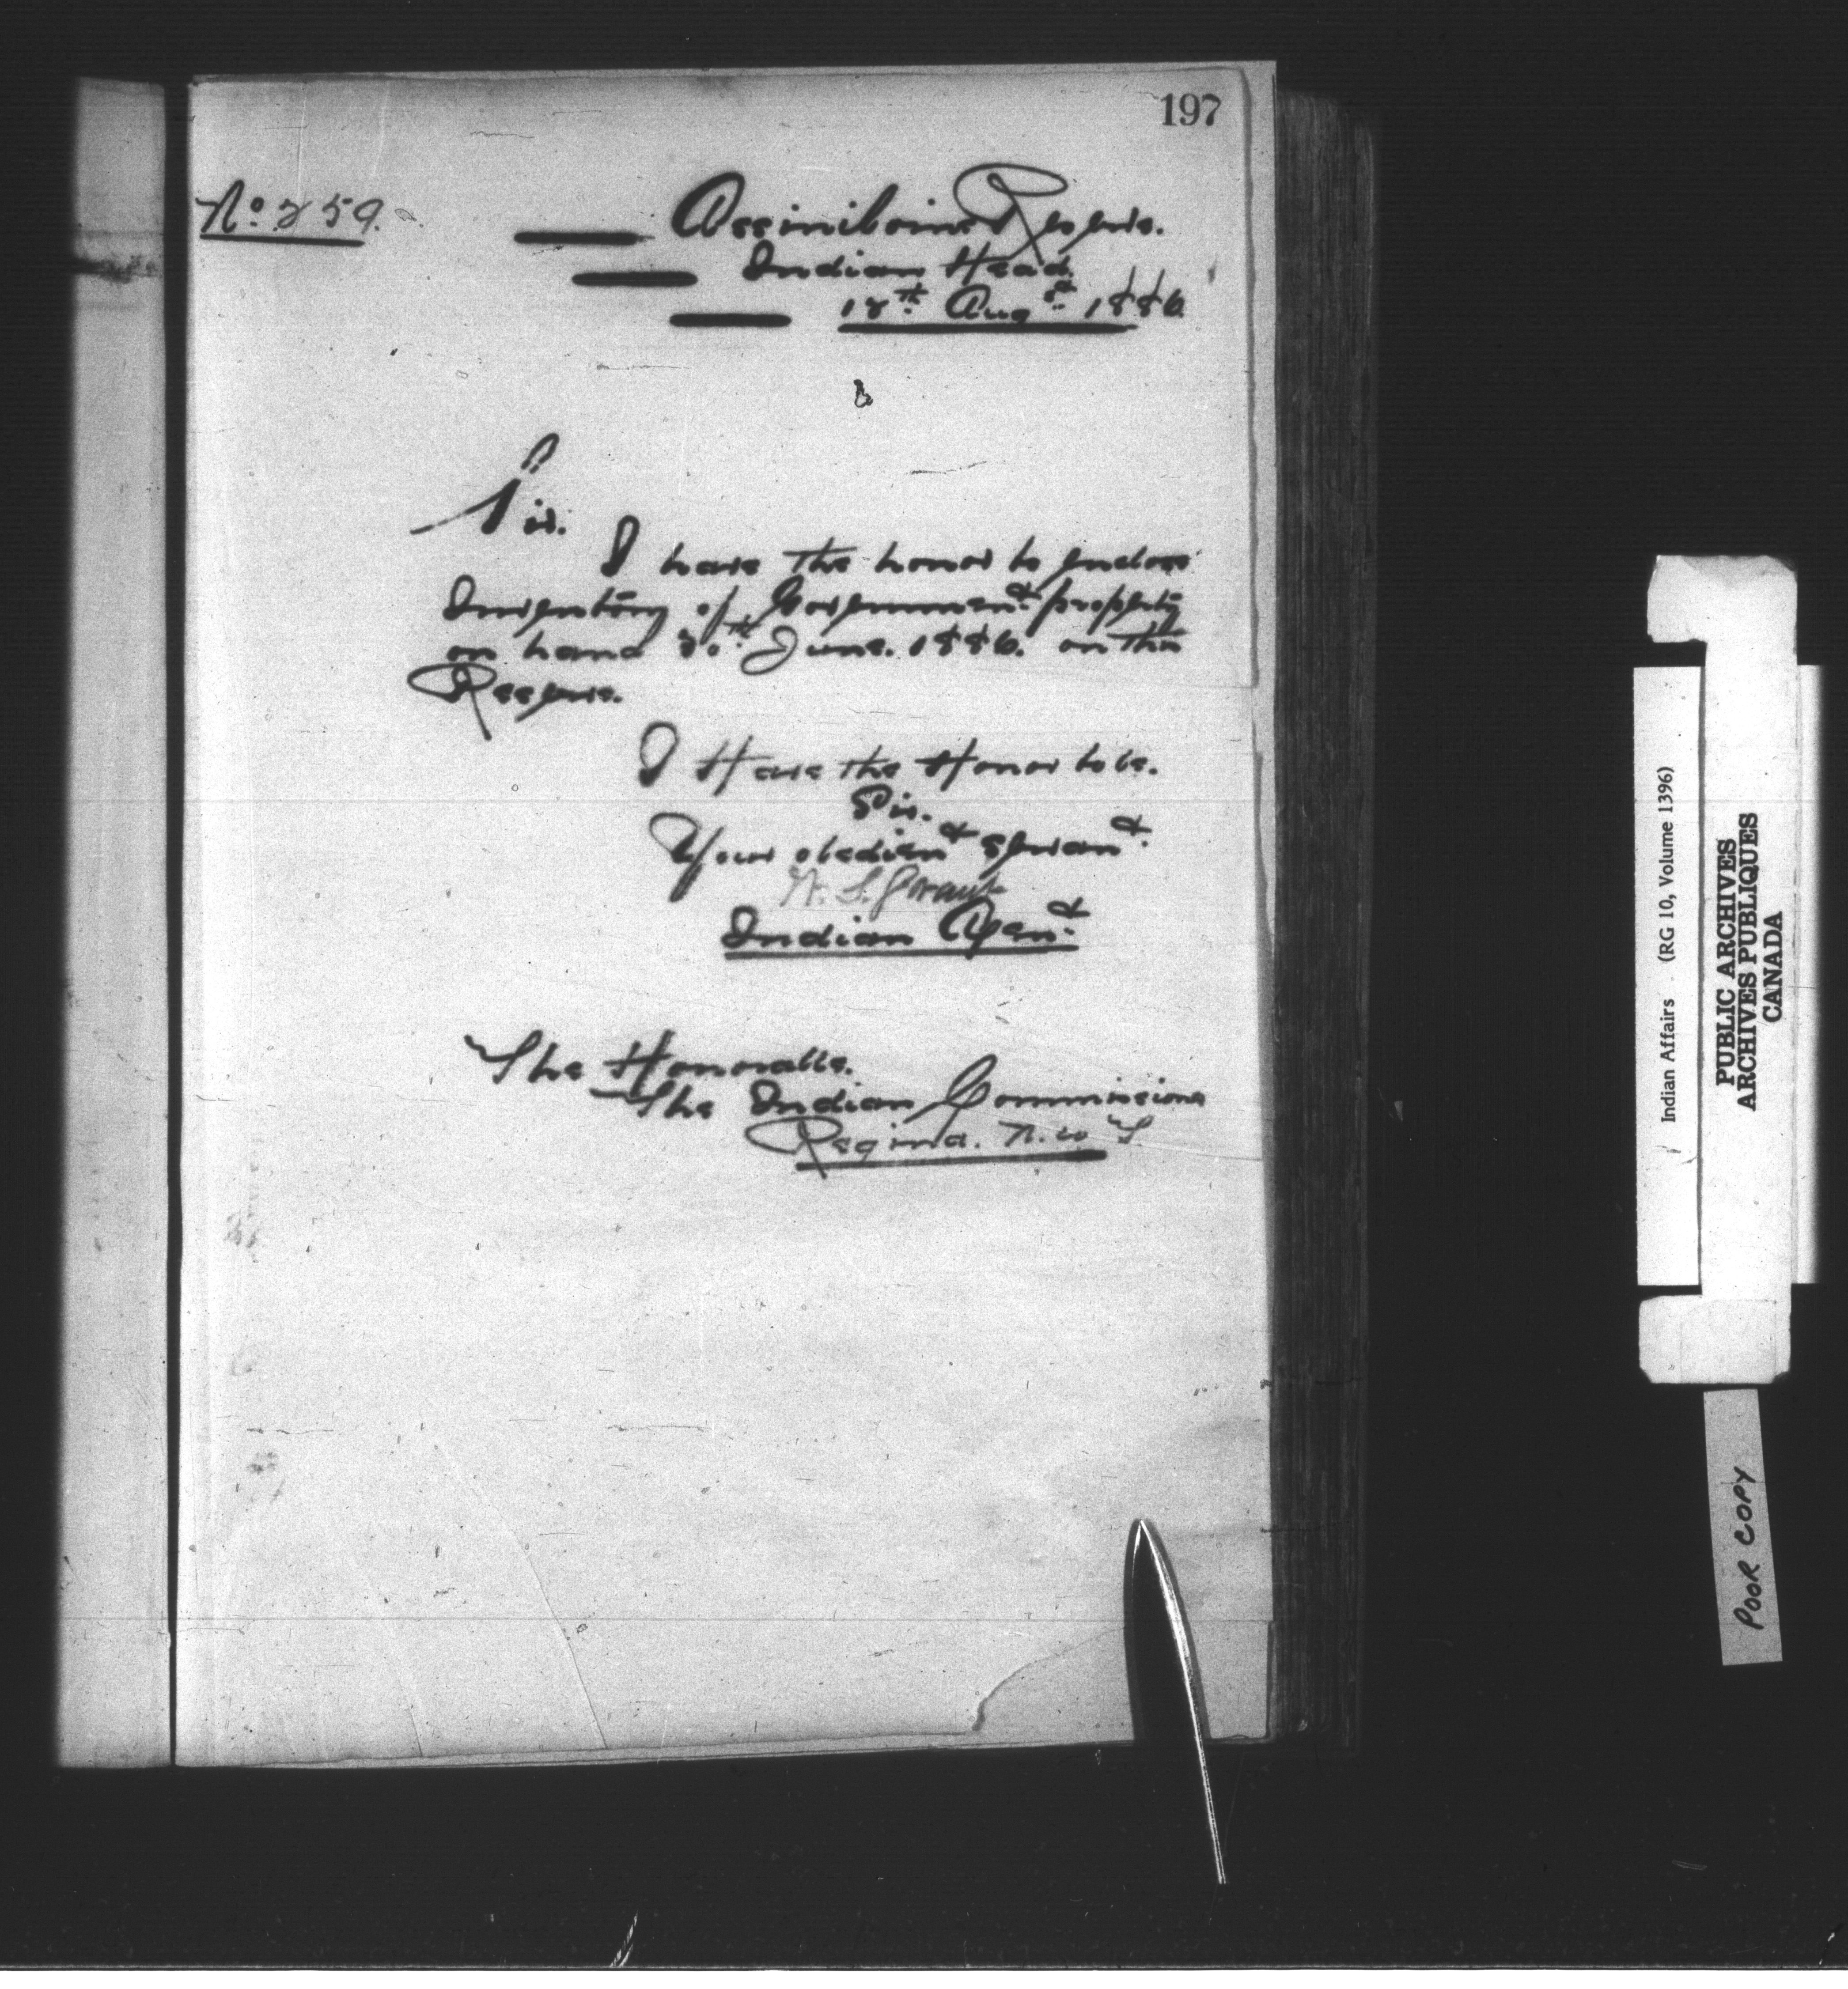 197
No 259.
Assiniboine Reserve.
Indian Head.
12th Augst 1886.
Sir.
I have the honor to enclose
Inventory of Government property
on hand 30th June. 1886. on this
Reserve.
I Have the Honor to be.
Sir.
Your obedient servant.
W. S. Grant
Indian Agent
The Honorable.
The Indian Commissioner
Regina. N.W.T
Indian Affairs (RG 10, Volume 1396)
PUBLIC ARCHIVES
ARCHIVES PUBLIQUES
CANADA
POOR COPY